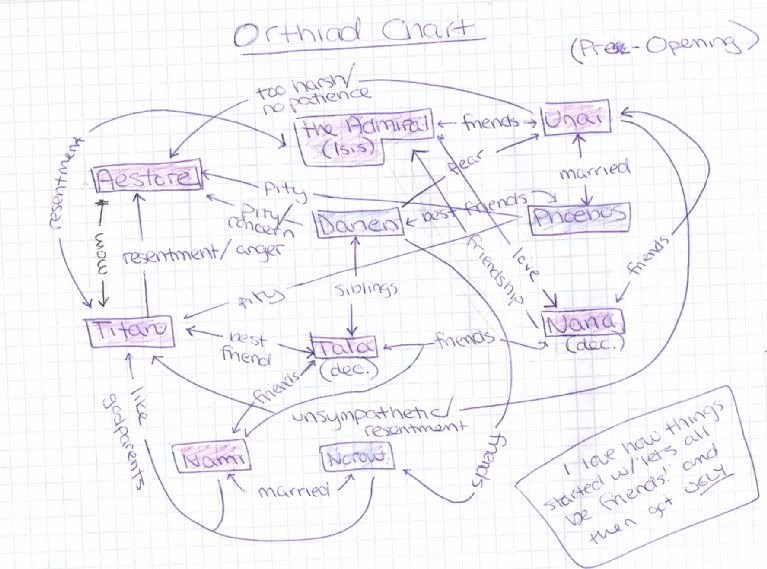 Orthiad Chart
(Pre-Opening)
too harsh/
no patience
the Admiral
(Isis)
friends
Unai
resentment
Aestore
pity
fear
married
pity/
concern
Danen
best friends
Phoebus
mom
resentment/
anger
friendship
love
friends
pity
siblings
Titan
best
friend
Tala
(dec.)
friends
Nana
(dec.)
friends
like
godparents
unsympathetic/
resentment
Nami
married
friends
I love how things
started w/ let's all
be friends! and
then got UGLY